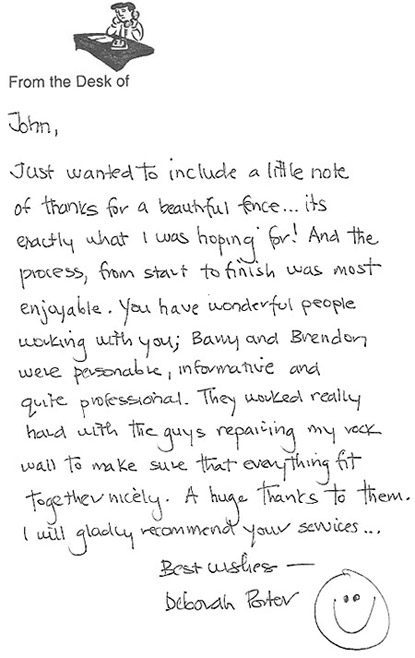 From the Desk of
John,
Just wanted to include a little note
of thanks for a beautiful fence... its
exactly what I was hoping for! And the
process, from start to finish was most
enjoyable. You have wonderful people
working with you; Barry and Brendon,
were personable, informative and
quite professional. They worked really
hard with the guys repairing my rock
wall to make sure that everything fit
together nicely. A huge thanks to them.
I will gladly recommend your services...
Best wishes —
Deborah Porter